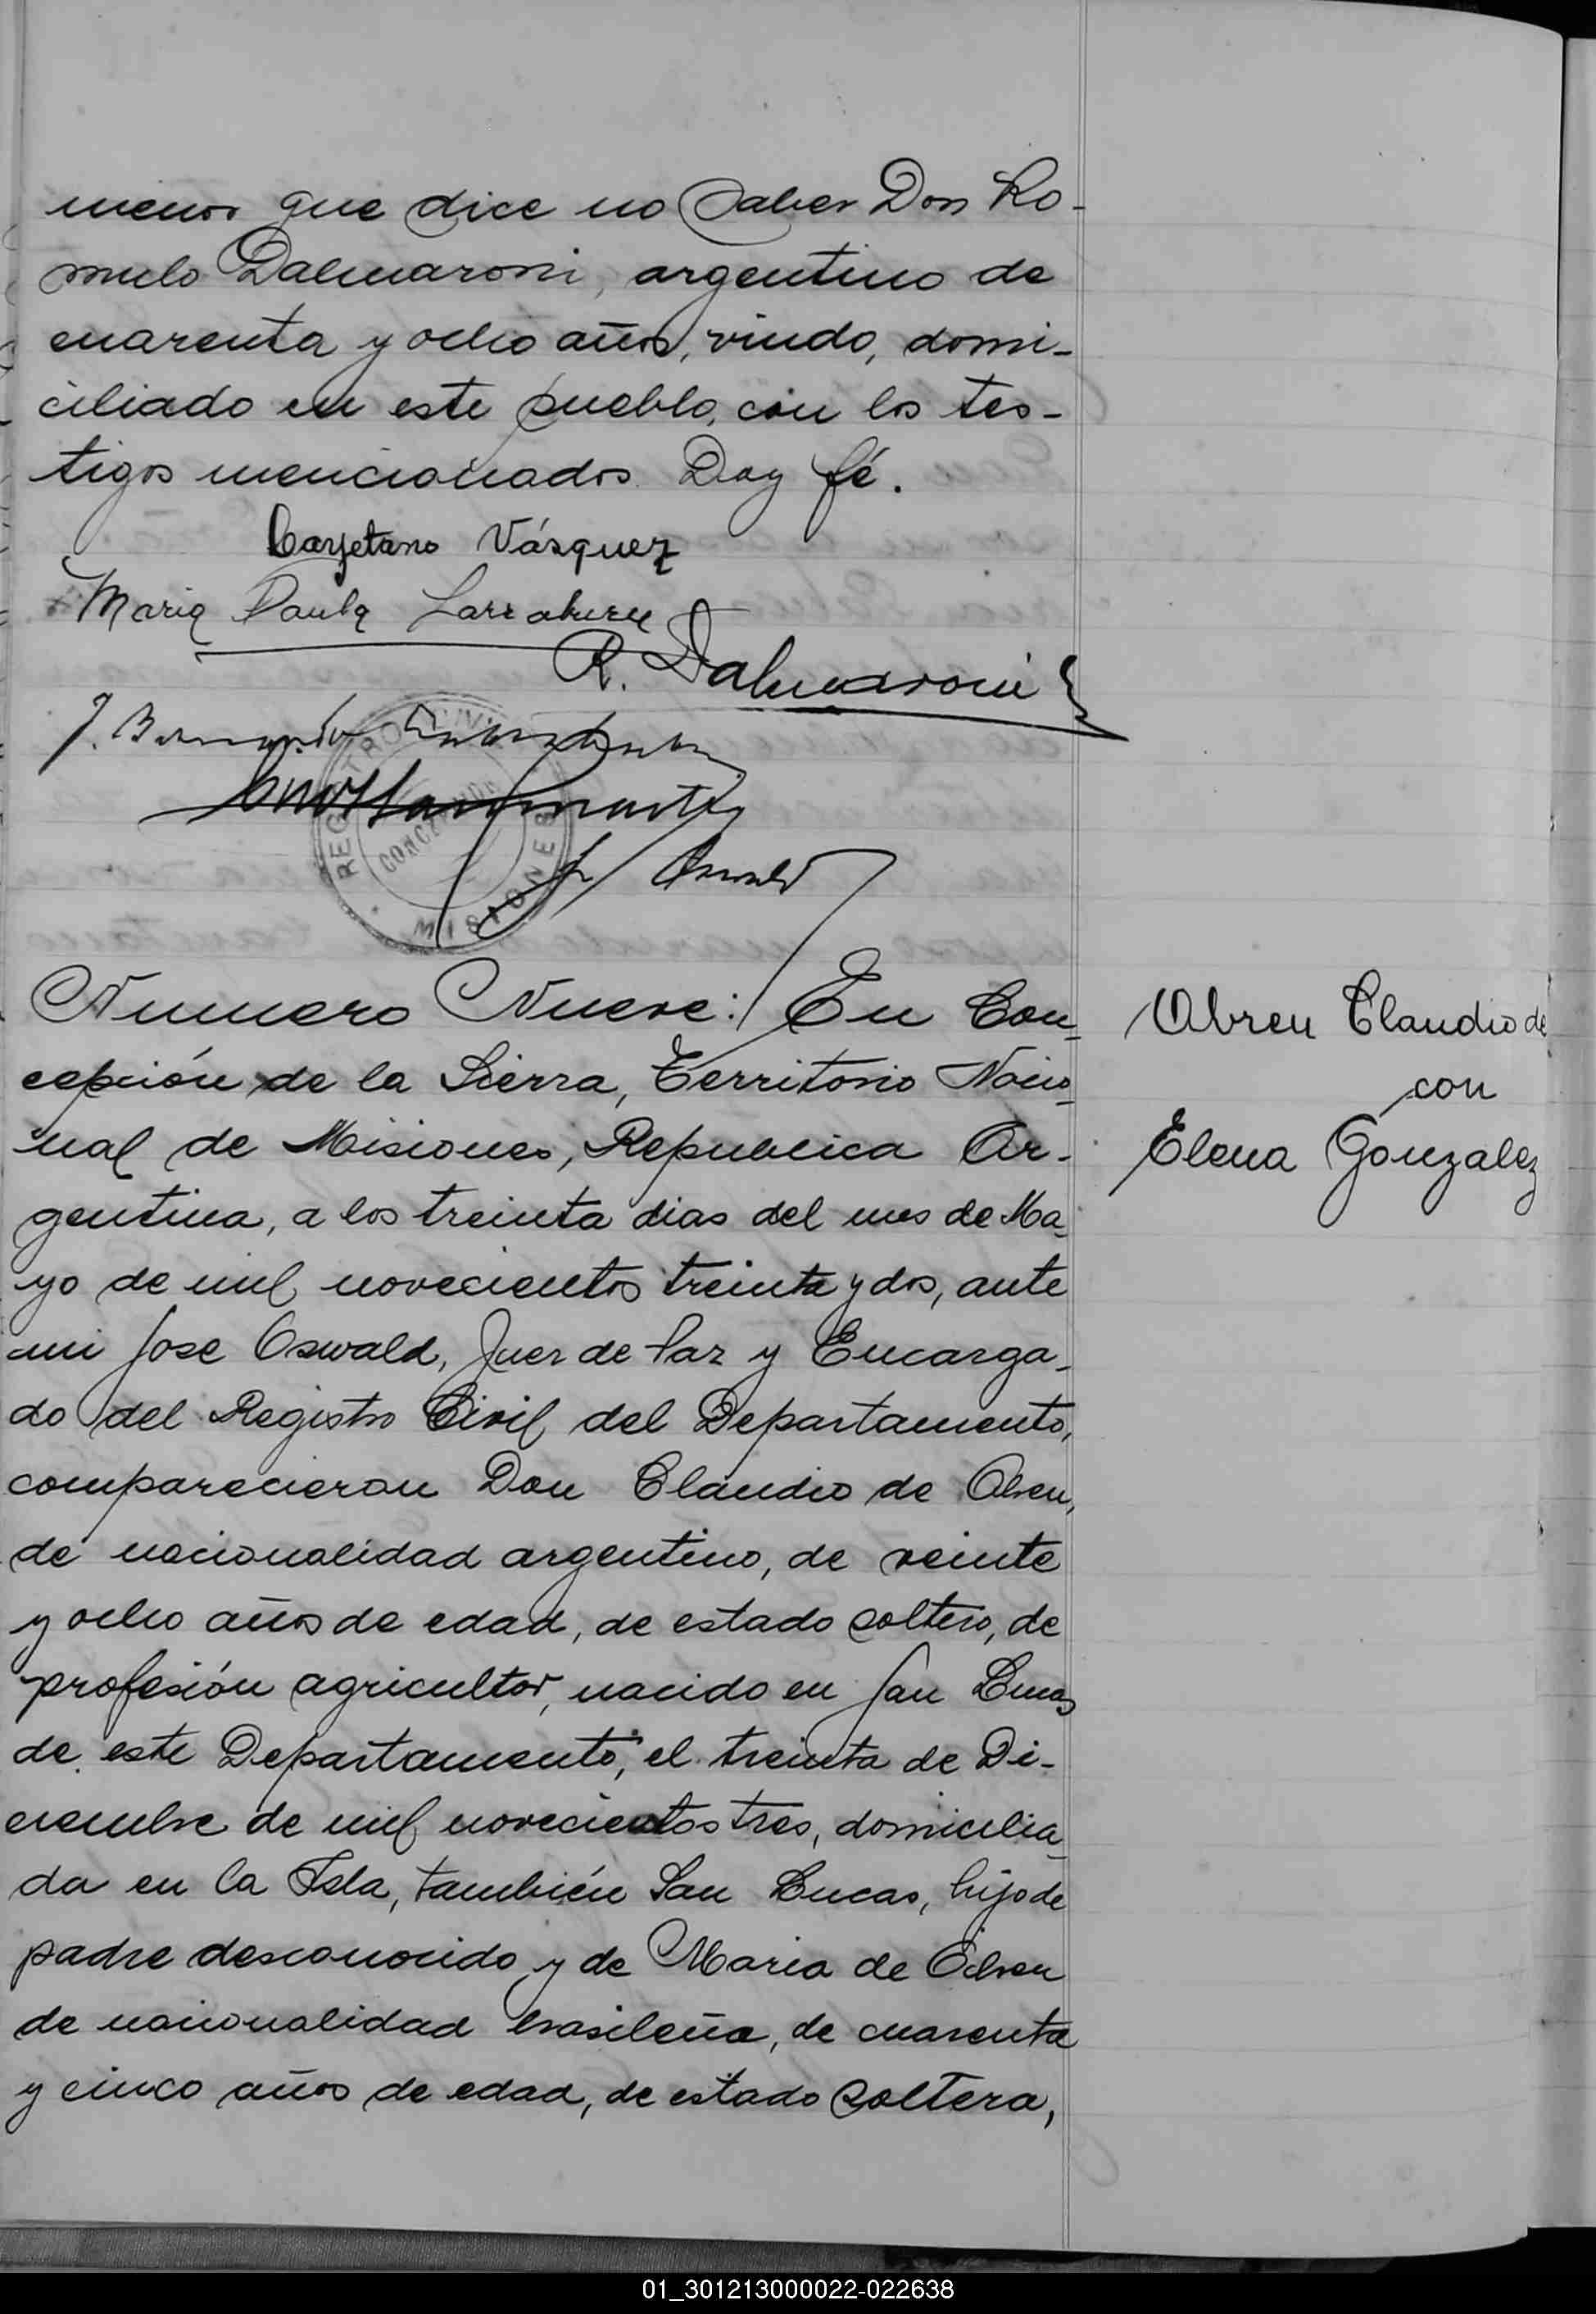 menor que dice no saber Don Ro-
mulo Dalmaroni, argentino de
cuarenta y ocho años, viudo, domi-
ciliado en este pueblo, con los tes-
tigos mencionados. Doy fé.
Cayetano Vásquez
Maria Paula Larraburu
R. Dalmaroni
J. Bernardo
REGISTRO CIVIL
CONCEPCION
MISIONES
J. Oswald
Numero Nueve: En Con-
cepción de la Sierra, Territorio Nacio-
nal de Misiones, Republica Ar-
gentina, a los treinta dias del mes de Ma-
yo de mil novecientos treinta y dos, ante
mi Jose Oswald, Juez de Paz y Encarga-
do del Registro Civil del Departamento,
comparecieron Don Claudio de Abreu,
de nacionalidad argentino, de veinte
y ocho años de edad, de estado soltero, de
profesión agricultor, nacido en San Lucas
de este Departamento, el treinta de Di-
ciembre de mil novecientos tres, domicilia-
do en la Isla, también San Lucas, hijo de
padre desconocido y de Maria de Abreu
de nacionalidad brasileña, de cuarenta
y cinco años de edad, de estado soltera,
Abreu Claudio de
con
Elena Gonzalez
01_301213000022-022638